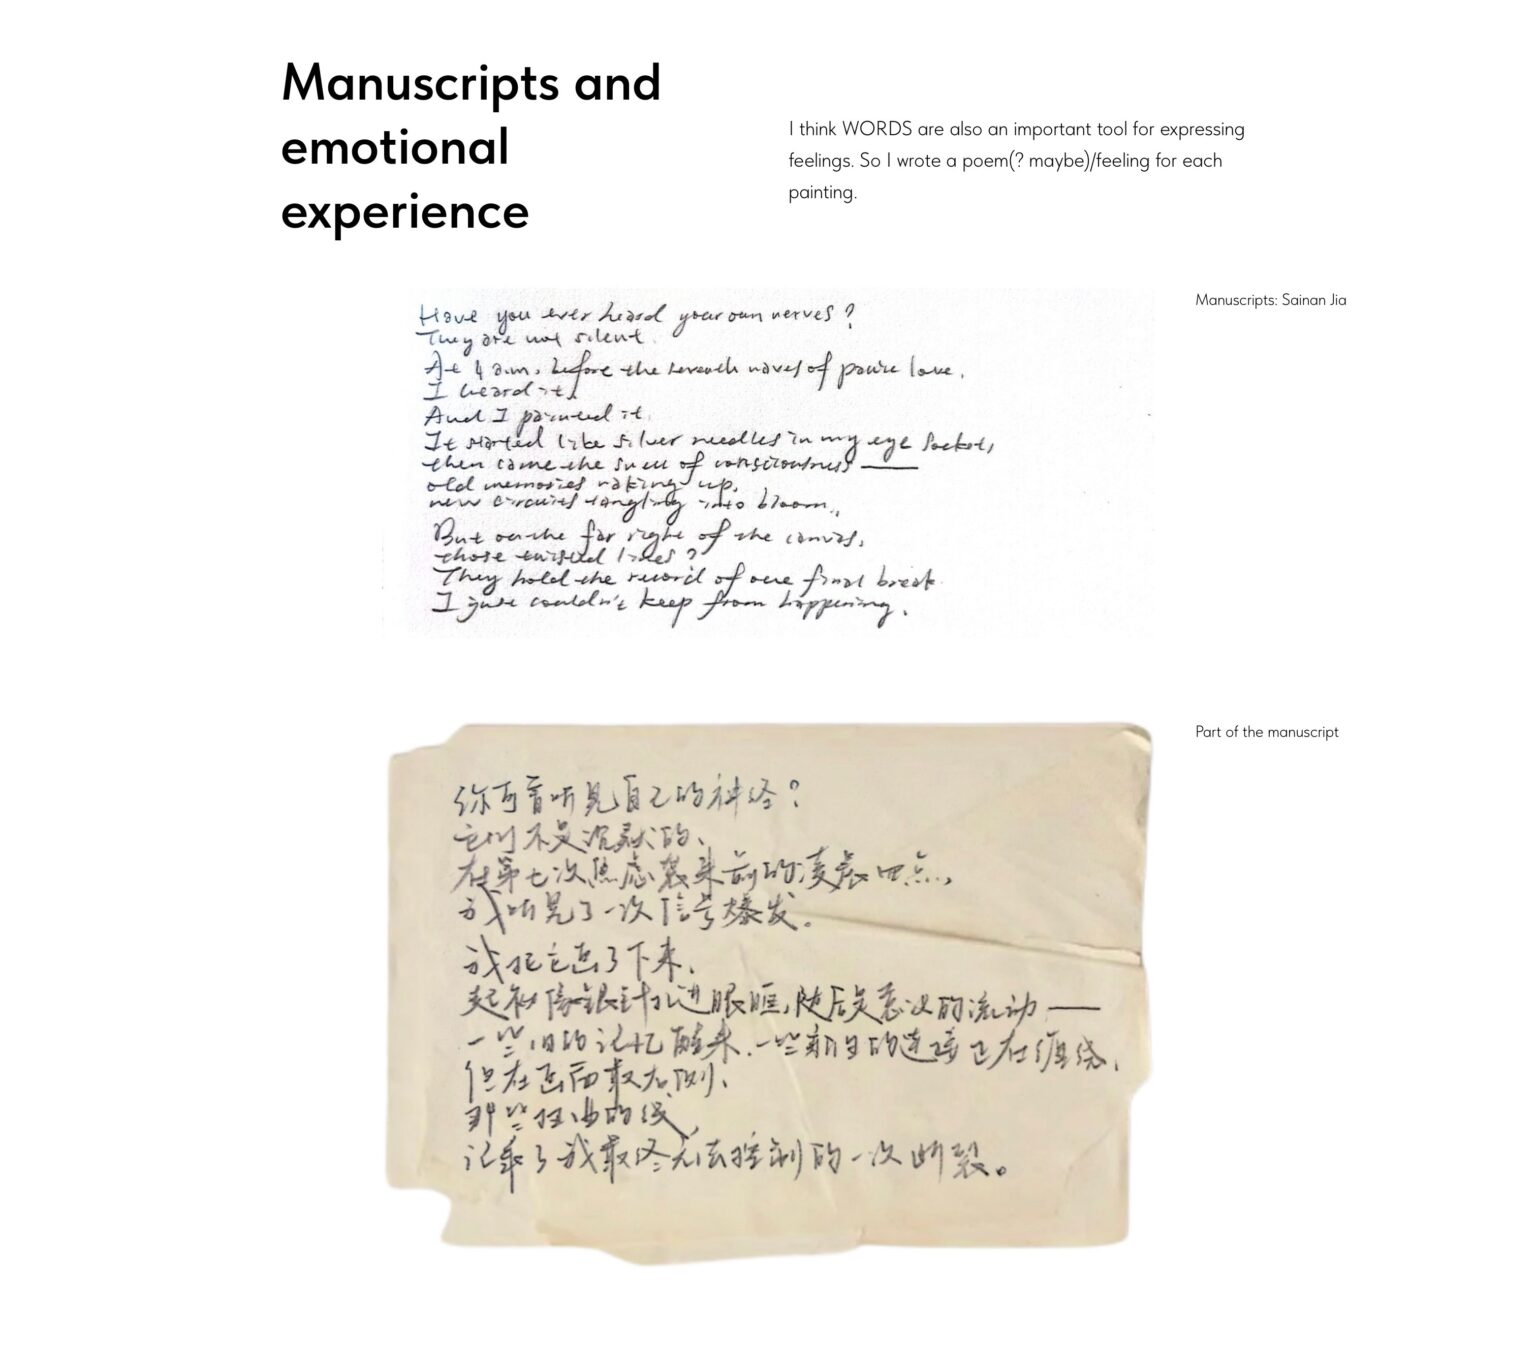 Manuscripts and
emotional
experience
I think WORDS are also an important tool for expressing
feelings. So I wrote a poem(? maybe)/feeling for each
painting.
Manuscripts: Sainan Jia
Have you ever heard your own nerves?
They are not silent.
At 4 a.m. before the seventh waves of panic
I heard it
And I painted it.
It started like silver needles in my eye sockets,
then came the of consciousness ——
old memories up,
new circuits tangling into bloom.
But on the far right of the canvas,
those twisted lines?
They hold the record of one final break
I just couldn't keep from happening.
Part of the manuscript
你可曾听见自己的神经？
它们不是沉默的、
在第七次焦虑袭来前的凌晨四点，
我听见了一次信号爆发。
我把它画了下来、
起初像银针扎进眼眶，随后是意识的流动——
一些旧的记忆醒来、一些新生的连接正在缠绕、
但在画面最右侧、
那些扭曲的线，
记录了我最终无法控制的一次断裂。